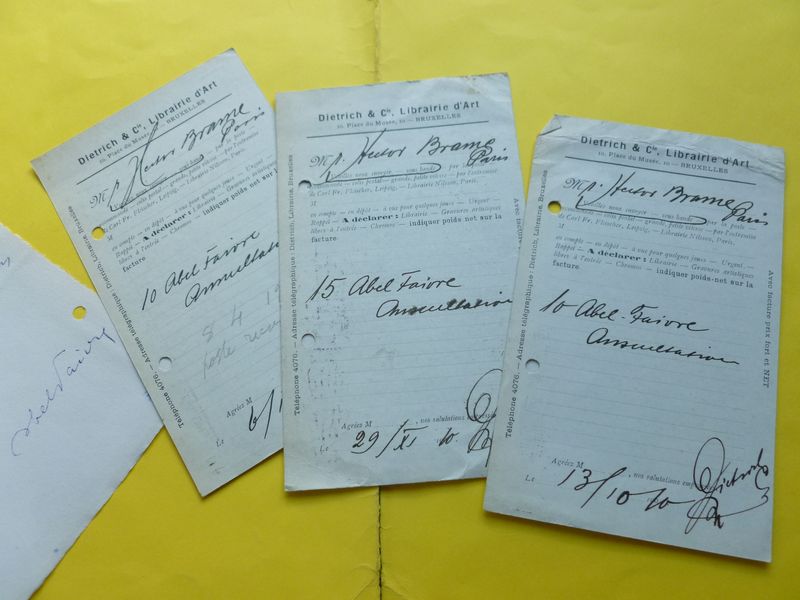 Dietrich & Cie, Librairie d'Art
10, Place du Musée, 10 — BRUXELLES
Mr. Hector Brame
Paris
en compte — en dépôt — à vue pour quelques jours — Urgent. —
Rappel — A déclarer: Librairie — Gravures artistiques
libres à l'entrée — Chromos — indiquer poids net sur la
facture.
10 Abel Faivre
Auscultation
Agréez M
Le 6/1
Téléphone 4076. — Adresse télégraphique: Dietrich, Librairie, Bruxelles
Dietrich & Cie, Librairie d'Art
10, Place du Musée, 10 — BRUXELLES
Mr. Hector Brame
Paris
Veuillez nous envoyer — sous bande — par
de Carl Fr. Fleischer, Leipzig, — Librairie Nilsson, Paris.
en compte — en dépôt — à vue pour quelques jours — Urgent. —
Rappel — A déclarer: Librairie — Gravures artistiques
libres à l'entrée — Chromos — indiquer poids net sur la
facture.
15 Abel Faivre
Auscultation
Agréez M , nos salutations empressées
Le 29/XI 10
Téléphone 4076. — Adresse télégraphique: Dietrich, Librairie, Bruxelles
Dietrich & Cie, Librairie d'Art
10, Place du Musée, 10 — BRUXELLES
Mr. Hector Brame
Paris
de Carl Fr. Fleischer, Leipzig, — Librairie Nilsson, Paris.
en compte — en dépôt — à vue pour quelques jours — Urgent. —
Rappel — A déclarer: Librairie — Gravures artistiques
libres à l'entrée — Chromos — indiquer poids net sur la
facture.
10 Abel-Faivre
Auscultation
Agréez M , nos salutations
Le 13/10 10
Dietrich
Téléphone 4076. — Adresse télégraphique: Dietrich, Librairie, Bruxelles
Avec facture prix fort et NET
abel Faivre